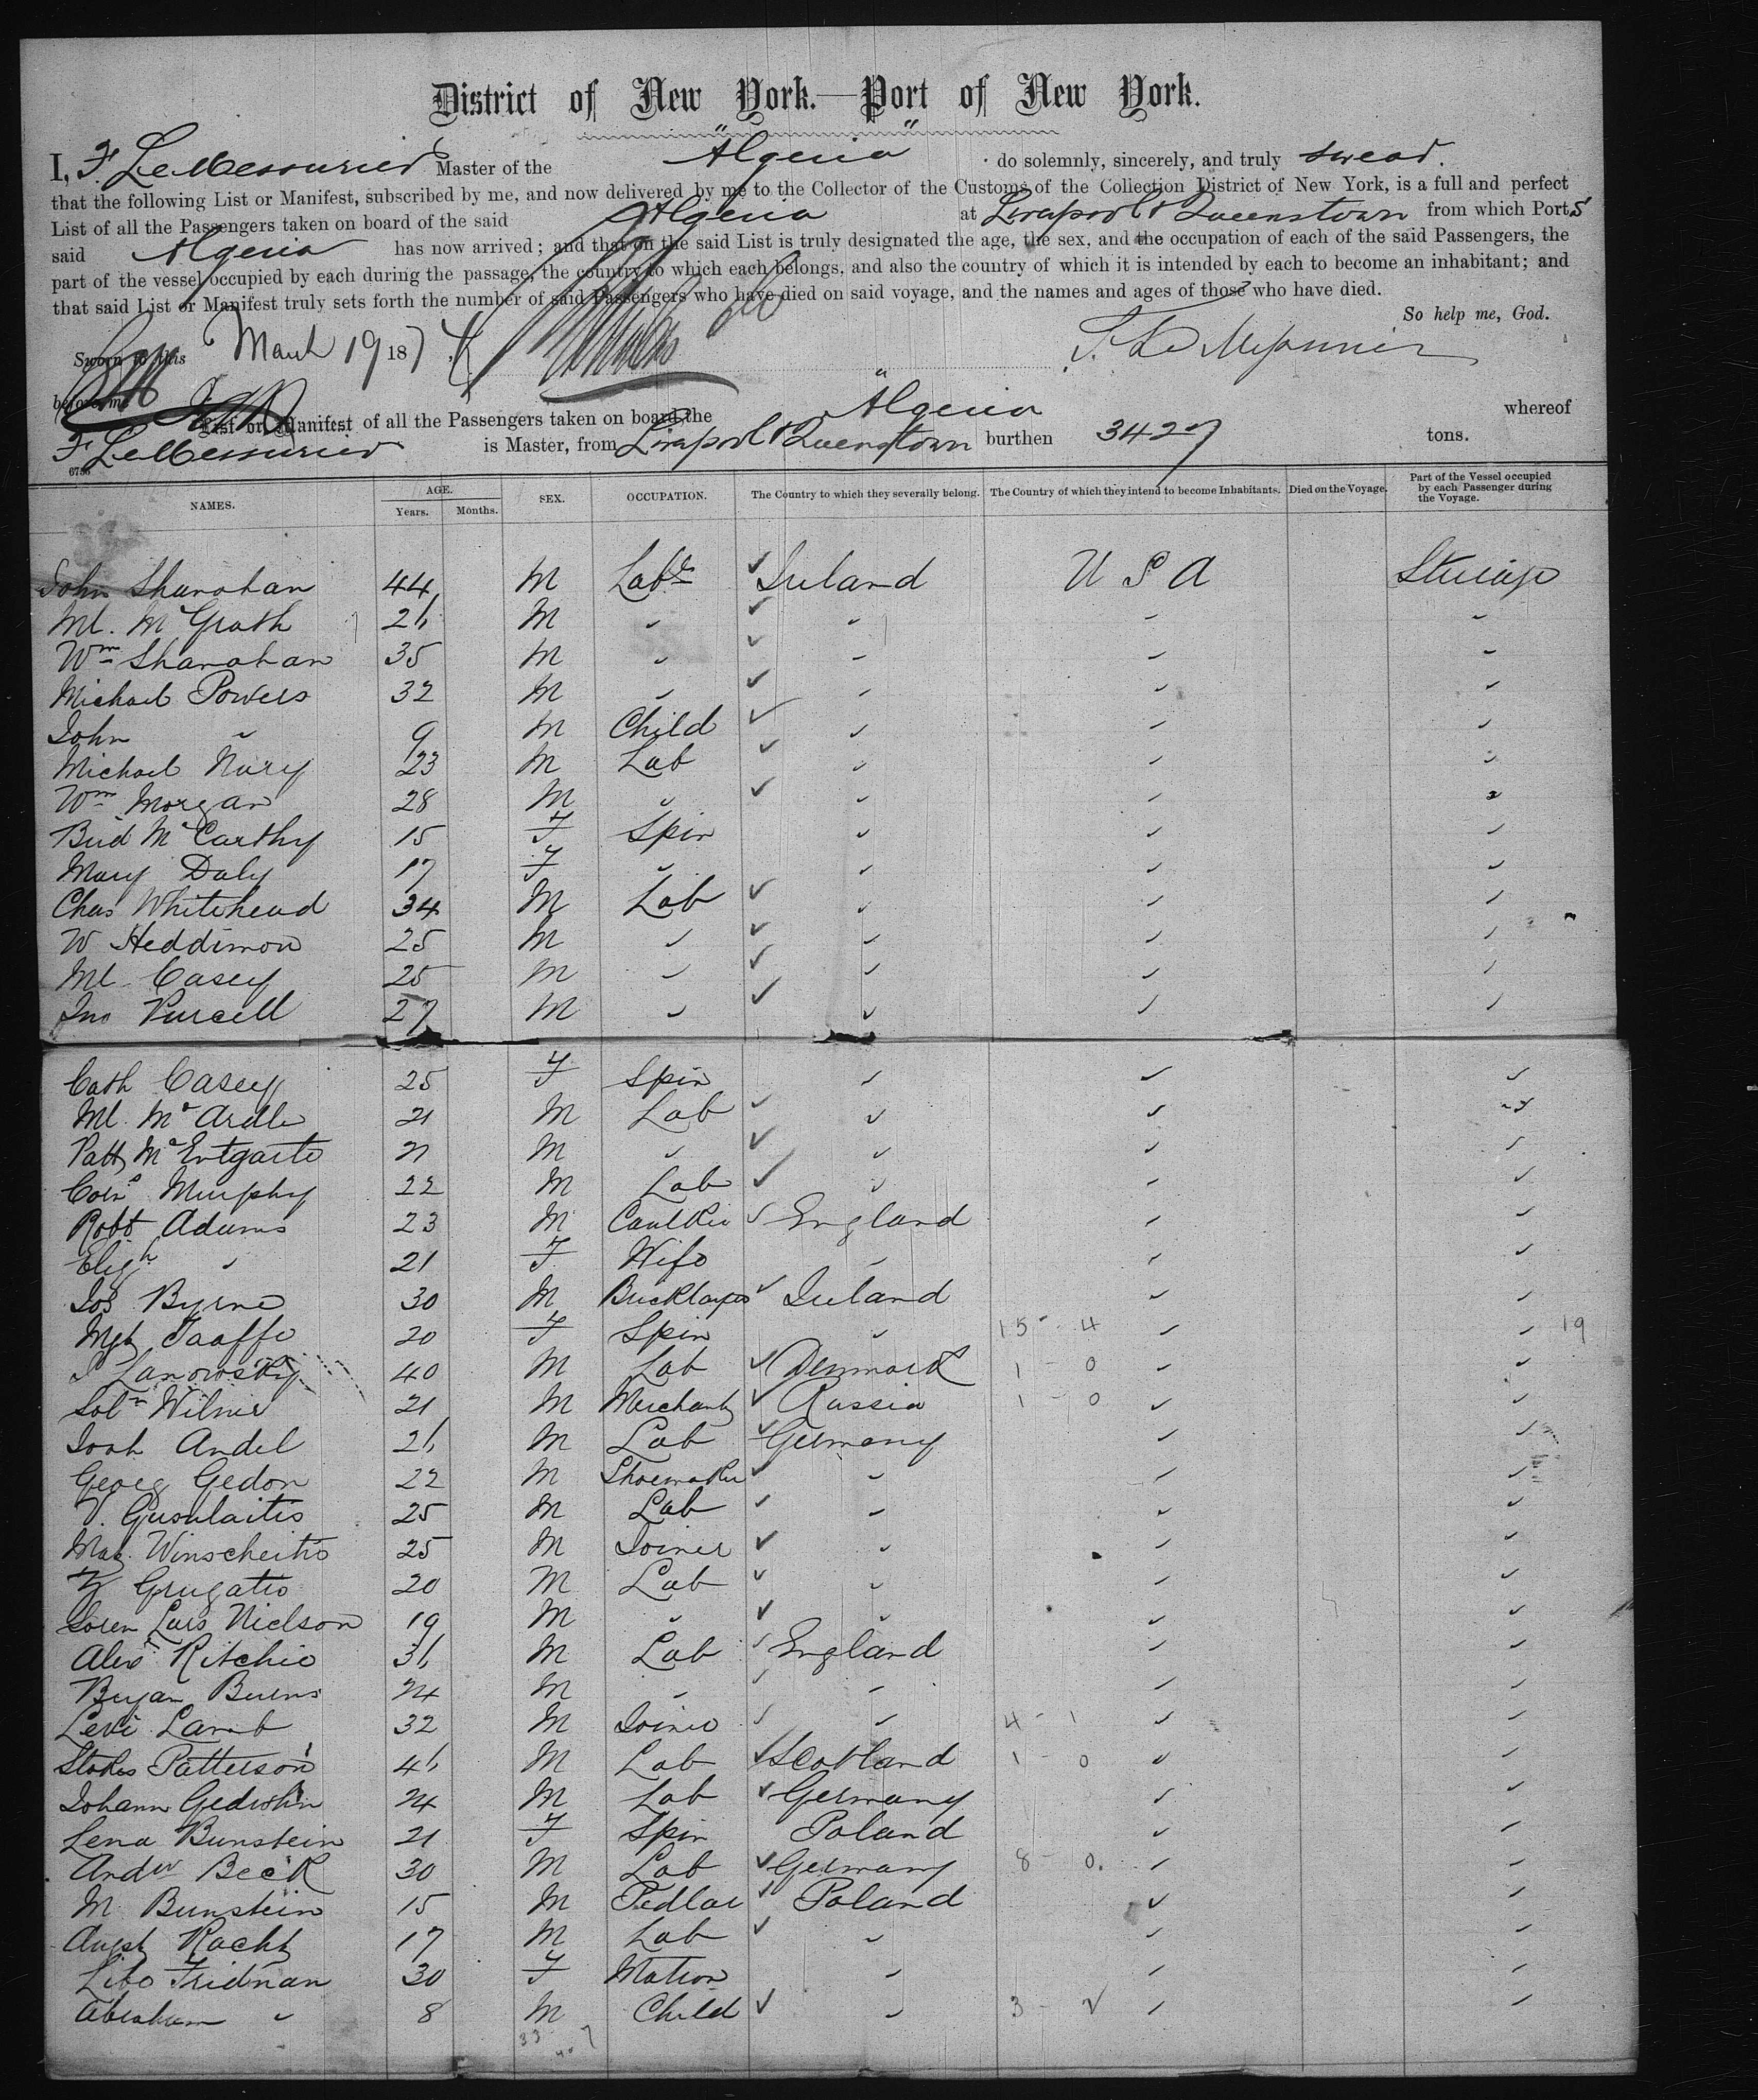 District of New York.—Port of New York.
I, F. LeMessurier Master of the "Algeria" do solemnly, sincerely, and truly swear.
that the following List or Manifest, subscribed by me, and now delivered by me to the Collector of the Customs of the Collection District of New York, is a full and perfect
List of all the Passengers taken on board of the said Algeria at Liverpool & Queenstown from which Ports
said Algeria has now arrived; and that on the said List is truly designated the age, the sex, and the occupation of each of the said Passengers, the
part of the vessel occupied by each during the passage, the country to which each belongs, and also the country of which it is intended by each to become an inhabitant; and
that said List or Manifest truly sets forth the number of said Passengers who have died on said voyage, and the names and ages of those who have died.
So help me, God.
Sworn to this March 19 1874 F. Le Messurier
before me
List or Manifest of all the Passengers taken on board the "Algeria whereof
F LeMessurier is Master, from Liverpool & Queenstown burthen 3427 tons.
6786
NAMES. AGE. Years. Months. SEX. OCCUPATION. The Country to which they severally belong. The Country of which they intend to become Inhabitants. Died on the Voyage. Part of the Vessel occupied by each Passenger during the Voyage.
John Shanahan 44 M Labr Ireland U S A Steerage
Ml. McGrath 26 M " " " "
Wm Shanahan 35 M " " " "
Michael Powers 32 M " " " "
John " 9 M Child " " "
Michael Nary 23 M Lab " " "
Wm Morgan 28 M " " " "
Brid McCarthy 15 F Spin " " "
Mary Daly 17 F " " " "
Chas Whitehead 34 M Lab " " "
W Heddimon 25 M " " " "
Ml Casey 25 M " " " "
Jno Purcell 27 M " " " "
Cath Casey 25 F Spin " " "
Ml. McArdle 21 M Lab " " "
Patt McEntgarte 21 M " " " "
Corns Murphy 22 M Lab " " "
Robt Adams 23 M Caulker England " "
Elizh " 21 F Wife " " "
Jos Byrne 30 M Bricklayer Ireland " "
Mgt Taaffe 20 F Spin " 15 - 4 " " 19
Lanowsky 40 M Lab Denmark 1 - 0 " "
Soln Wilner 21 M Merchant Russia 1 - 0 " "
Andel 26 M Lab Germany " "
Georg Gedon 22 M Shoemaker " " "
V. Gusulaitis 25 M Lab " " "
Winscheitis 25 M Joiner " " "
Grugatis 20 M Lab " " "
Soren Lars Nielson 19 M " " " "
Alexr Ritchie 36 M Lab England " "
Bryan Burns 24 M " " " "
Levi Lamb 32 M Joiner " 4 - 1 " "
Stokes Patterson 46 M Lab Scotland 1 - 0 " "
Johann Gedwhin 24 M Lab Germany " "
Lena Bunstein 21 F Spin Poland " "
Andw Beck 30 M Lab Germany 8 - 0. " "
M Bunstein 15 M Pedlar Poland " "
Augst Racht 17 M Lab " " "
Libe Fridman 30 F Matron " " "
Abraham " 8 M Child " 3 - 2 " "
33 7
40